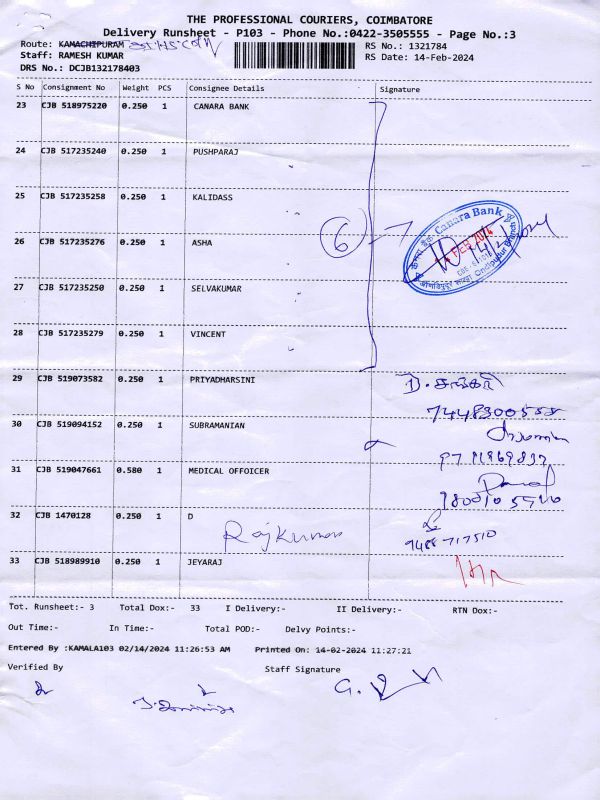 THE PROFESSIONAL COURIERS, COIMBATORE
Delivery Runsheet - P103 - Phone No.:0422-3505555 - Page No.:3
Route: KAMACHIPURAM
RS No.: 1321784
Staff: RAMESH KUMAR
RS Date: 14-Feb-2024
DRS No.: DCJB132178403
S No Consignment No Weight PCS Consignee Details Signature
23 CJB 518975220 0.250 1 CANARA BANK
24 CJB 517235240 0.250 1 PUSHPARAJ
25 CJB 517235258 0.250 1 KALIDASS
26 CJB 517235276 0.250 1 ASHA
6
Canara Bank
FEB 2024
Ondipudur Branch
27 CJB 517235250 0.250 1 SELVAKUMAR
28 CJB 517235279 0.250 1 VINCENT
29 CJB 519073582 0.250 1 PRIYADHARSINI
30 CJB 519094152 0.250 1 SUBRAMANIAN
31 CJB 519047661 0.580 1 MEDICAL OFFOICER
32 CJB 1470128 0.250 1 D
Rajkumar
9488717510
33 CJB 518989910 0.250 1 JEYARAJ
Tot. Runsheet:- 3 Total Dox:- 33 I Delivery:- II Delivery:- RTN Dox:-
Out Time:- In Time:- Total POD:- Delvy Points:-
Entered By :KAMALA103 02/14/2024 11:26:53 AM Printed On: 14-02-2024 11:27:21
Verified By Staff Signature